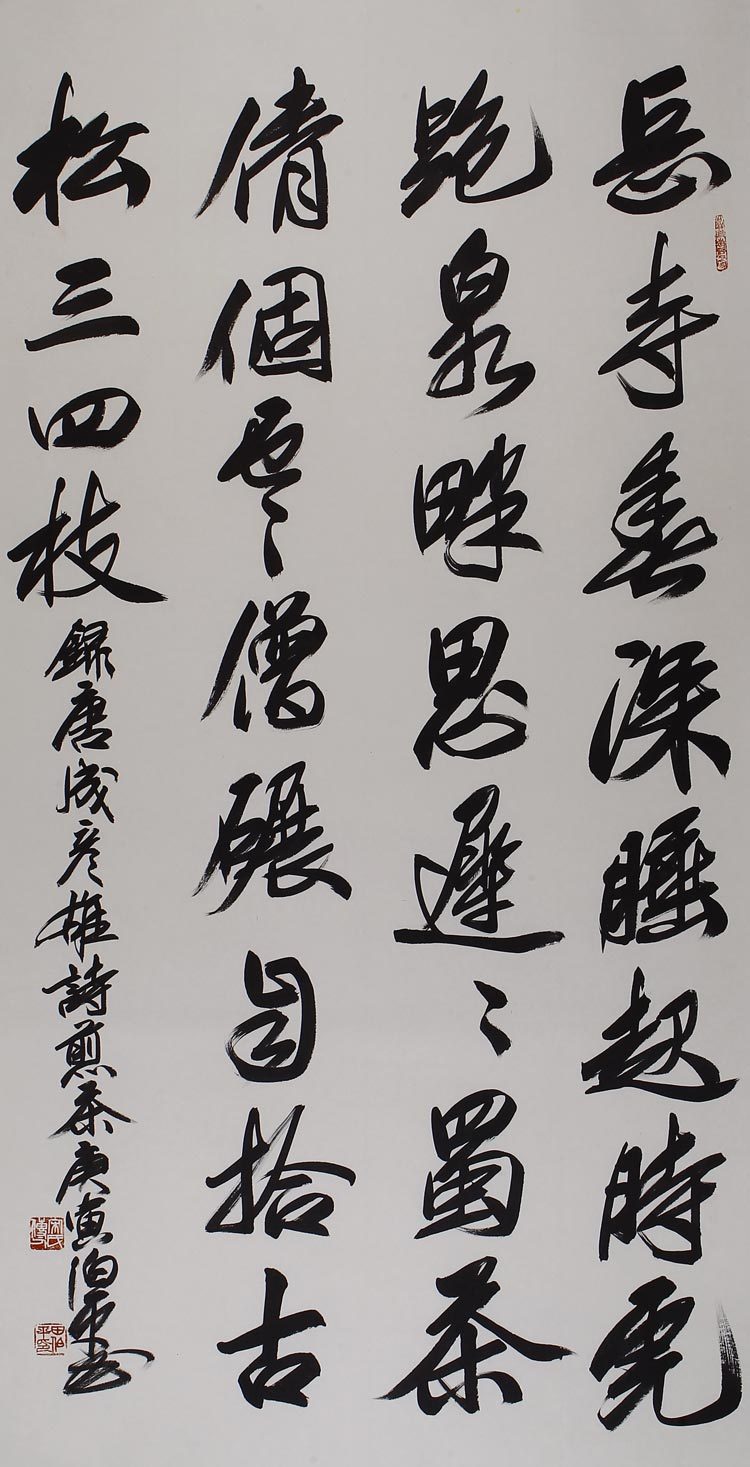 岳寺春深睡起時虎
跑泉畔思遲〻蜀茶
倩個雲僧碾自拾古
松三四枝 錄唐成彥雄詩煎茶庚寅泊平書